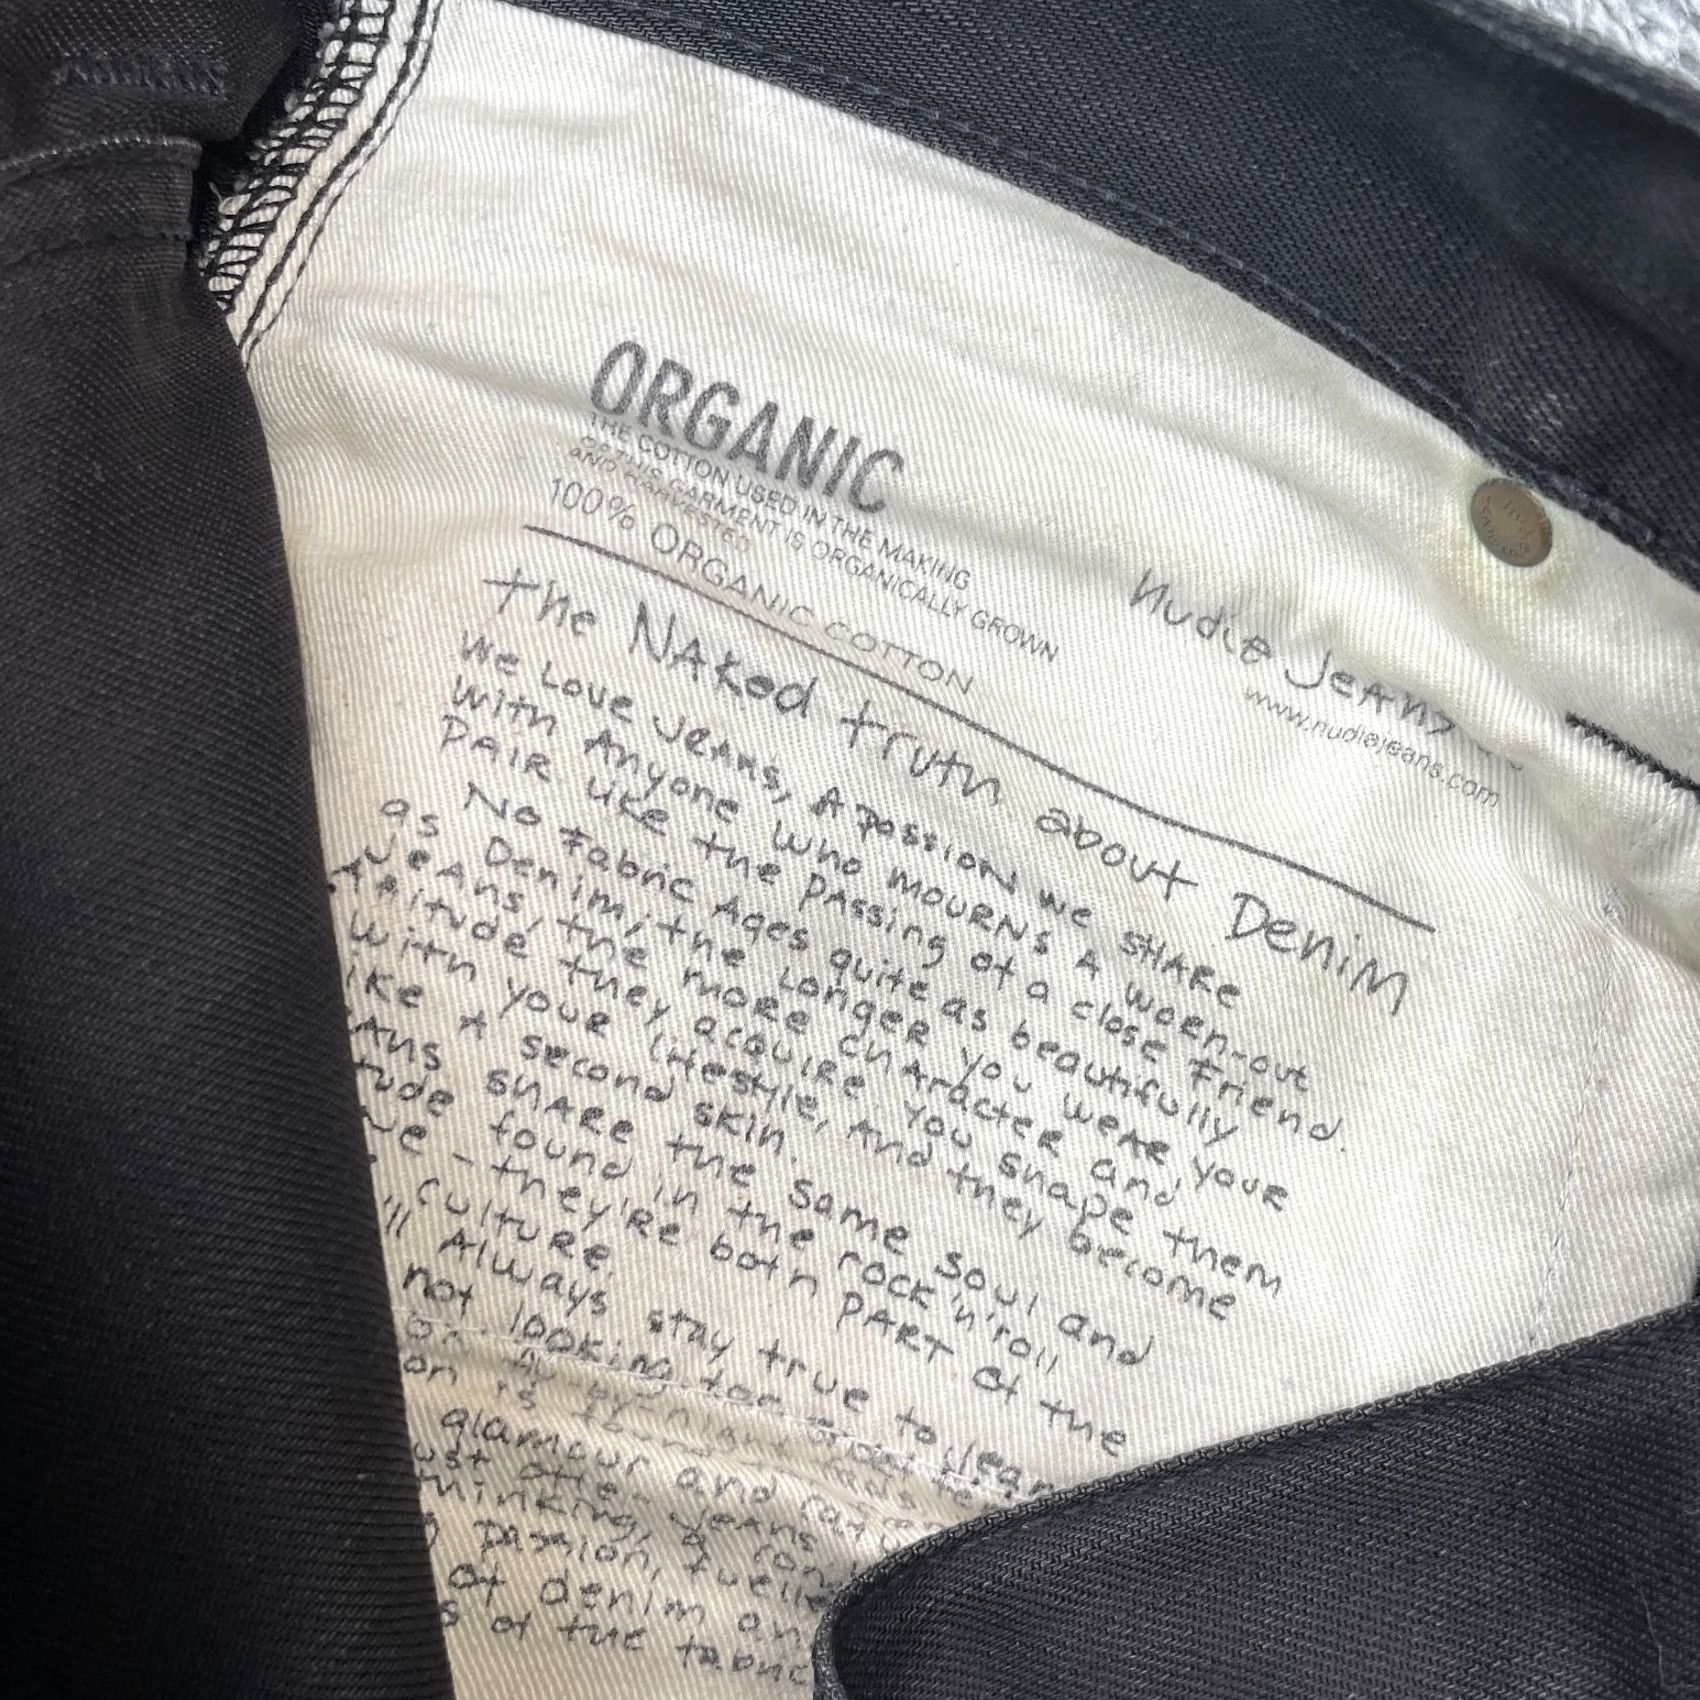 ORGANIC
THE COTTON USED IN THE MAKING
OF THIS GARMENT IS ORGANICALLY GROWN
AND HARVESTED
100% ORGANIC COTTON
Nudie Jeans
www.nudiejeans.com
The Naked truth about Denim
We Love Jeans, A Passion we SHARE
With Anyone Who mourns A worn-out
PAIR Like the PAssing of a close Friend.
No fabric Ages quite as beautifully
as Denim; the Longer you weAR your
Jeans, the more character and
they acquire. You shape them
With your lifestyle, And they become
A second skin.
share the same soul and
found in the rock'n'roll
they're both PART of the
culture.
Always stay true to
not looking for
on is
glamour and
other jeans
thinking, a
passion,
of denim
of the fabric